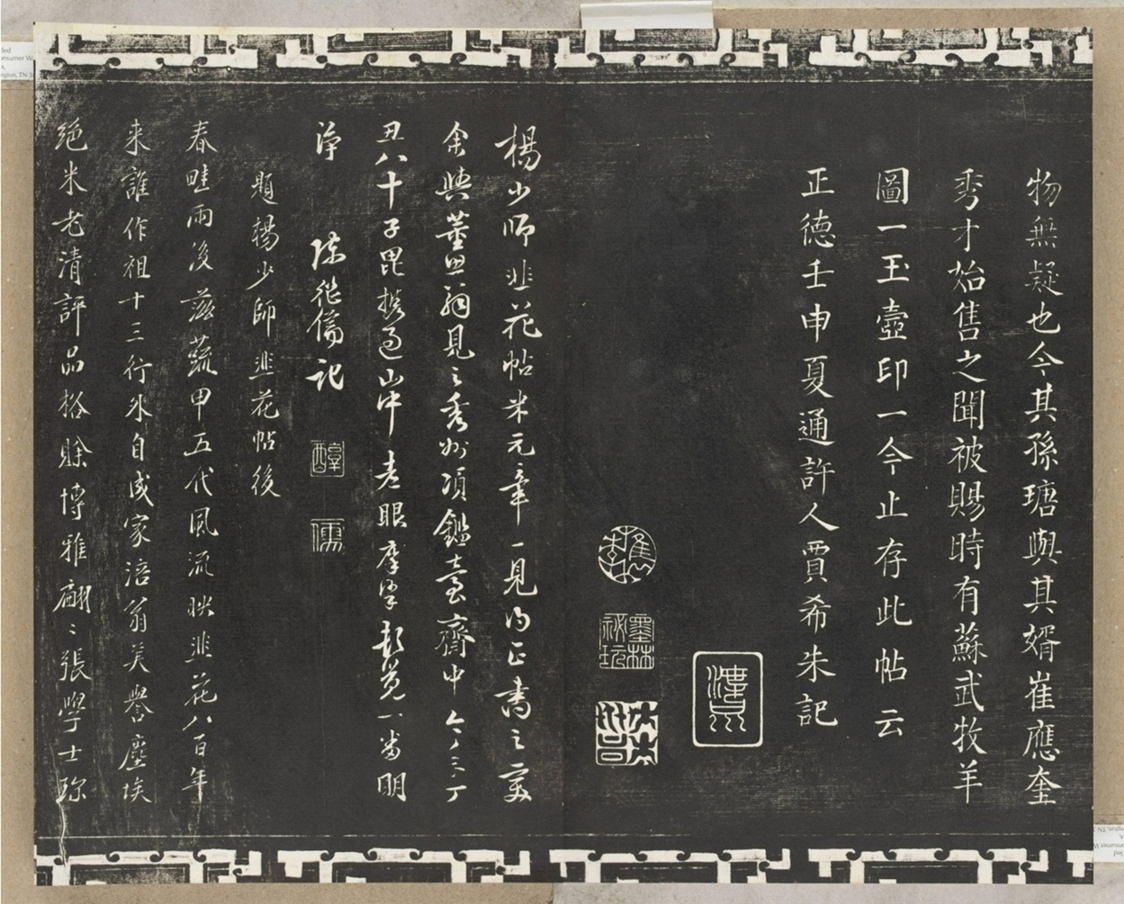 物無疑也今其孫瑭與其婿崔應奎
秀才始售之聞被賜時有蘇武牧羊
圖一玉壺印一今止存此帖云
正德壬申夏通許人賈希朱記
墨林祕玩
楊少師韭花帖米元章一見以正書之變
余與董思翁見之秀州項鑑臺齋中今又三丁
丑八十子毘携過山中老眼摩挲新覺一番明
淨 陳繼儒記
醇儒
題楊少師韭花帖後
春畦雨後滋蔬甲五代風流昧韭花八百年
来誰作祖十三行外自成家涪翁美譽塵埃
絕米老清評品格賒博雅翩〻張學士珎